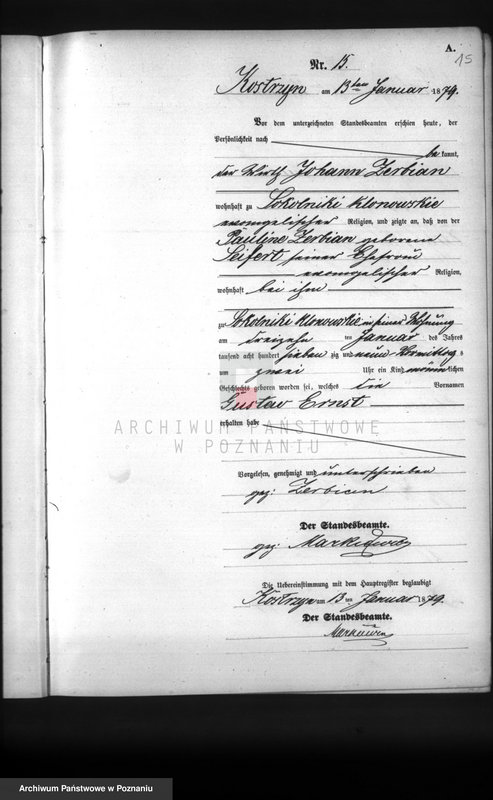 A.
15
Nr. 15.
Kostrzyn am 13ten Januar 1879.
Vor dem unterzeichneten Standesbeamten erschien heute, der
Persönlichkeit nach
bekannt,
der Wirth Johann Zerbian
wohnhaft zu Sokolniki klonowskie
evangelischer Religion, und zeigte an, daß von der
Pauline Zerbian geborene
Seifert seiner Ehefrau
evangelischer Religion,
wohnhaft bei ihm
zu Sokolniki klonowskie in seiner Wohnung
am dreizehn ten Januar des Jahres
tausend acht hundert sieben zig und neun Vormittags
um zwei Uhr ein Kind männlichen
Geschlechts geboren worden sei, welches die Vornamen
Gustav Ernst
erhalten habe
ARCHIWUM PAŃSTWOWE
W POZNANIU
Vorgelesen, genehmigt und unterschrieben
gez: Zerbian
Der Standesbeamte.
gez Markiewicz
Die Uebereinstimmung mit dem Hauptregister beglaubigt
Kostrzyn am 13 ten Januar 1879.
Der Standesbeamte.
Markiewicz
Archiwum Państwowe w Poznaniu